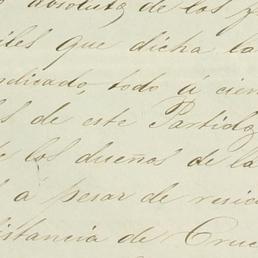 absoluta de los f
iles que dicha lo
ndicado, todo á cien
s de este Partido,
e los dueños de la
á pesar de resid
istancia de Cruc